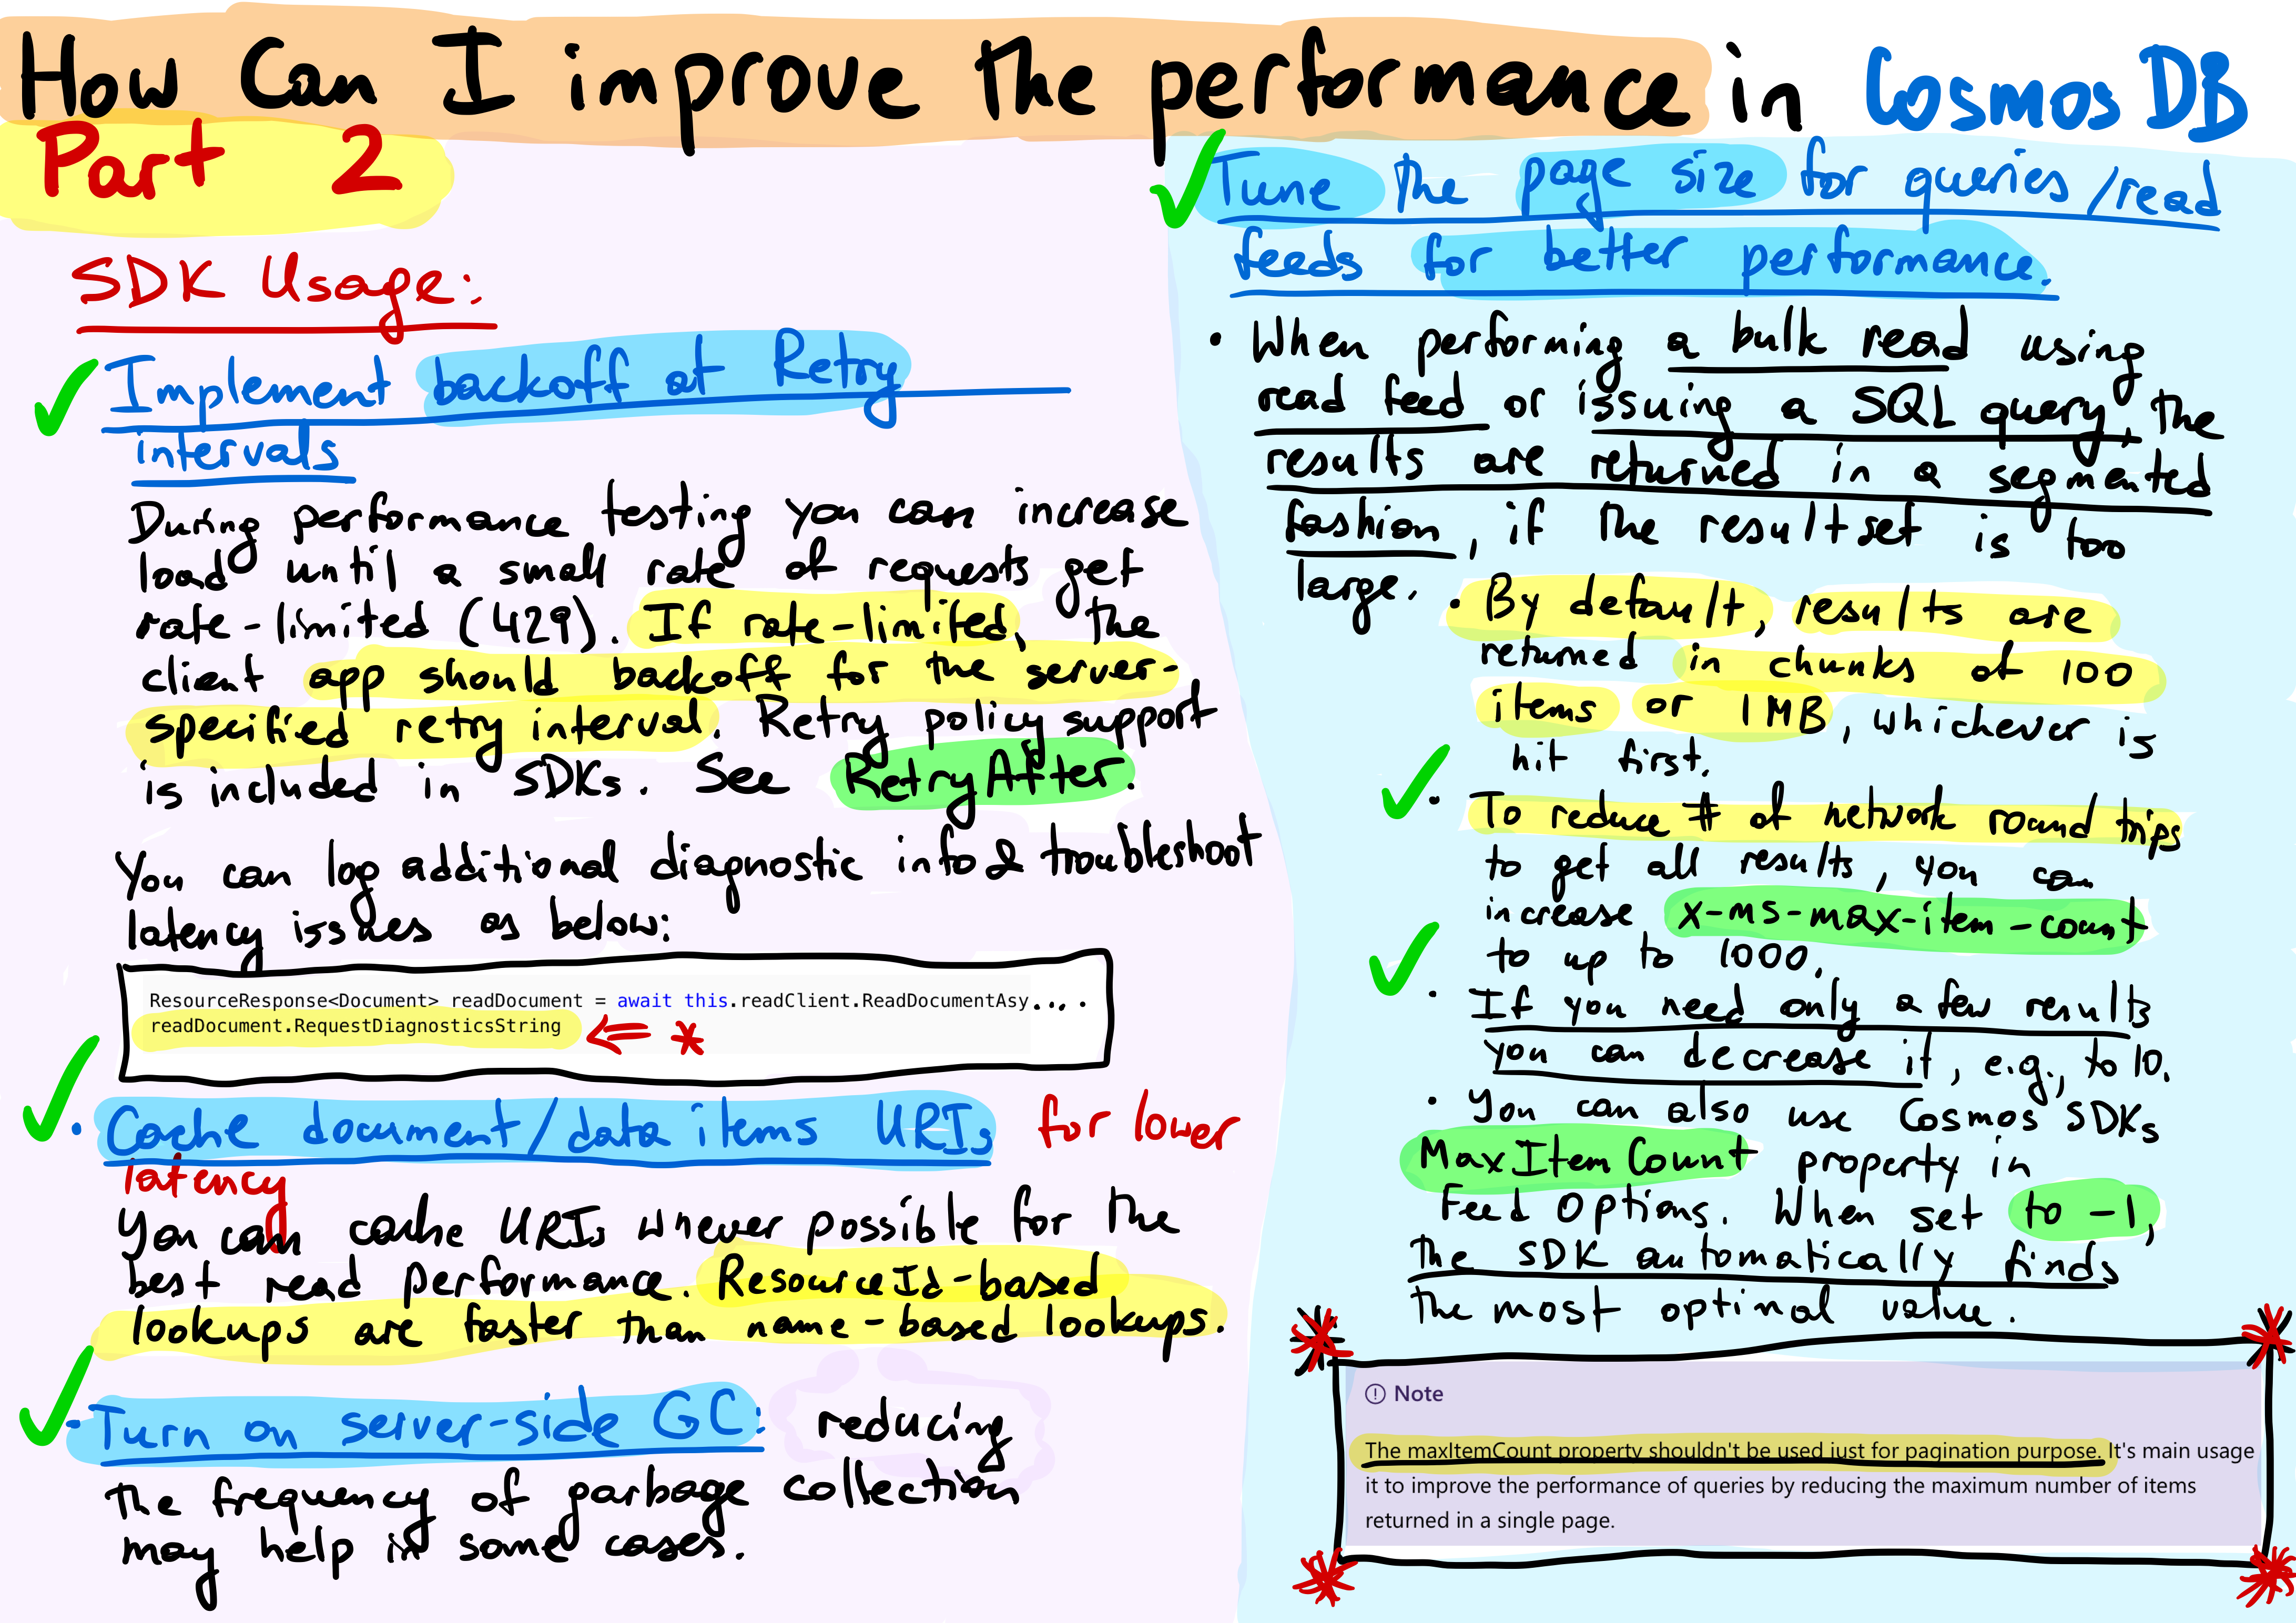 How Can I improve the performance in Cosmos DB
Part 2
SDK Usage:
Implement backoff at Retry
intervals
During performance testing you can increase
load until a small rate of requests get
rate-limited (429). If rate-limited, the
client app should backoff for the server-
specified retry interval. Retry policy support
is included in SDKs. See RetryAfter.
You can log additional diagnostic info & troubleshoot
latency issues as below:
ResourceResponse<Document> readDocument = await this.readClient.ReadDocumentAsy....
readDocument.RequestDiagnosticsString ⇐ *
• Cache document/data items URIs for lower
latency
You can cache URIs whever possible for the
best read performance. ResourceId-based
lookups are faster than name-based lookups.
• Turn on server-side GC: reducing
the frequency of garbage collection
may help in some cases.
Tune the page size for queries/read
feeds for better performance.
• When performing a bulk read using
read feed or issuing a SQL query, the
results are returned in a segmented
fashion, if the resultset is too
large.
• By default, results are
returned in chunks of 100
items or 1MB, whichever is
hit first.
• To reduce # of network round trips
to get all results, you can
increase x-ms-max-item-count
to up to 1000.
• If you need only a few results
you can decrease it, e.g., to 10.
• You can also use Cosmos SDKs
MaxItemCount property in
Feed Options. When set to -1,
the SDK automatically finds
the most optimal value.
Note
The maxItemCount property shouldn't be used just for pagination purpose. It's main usage
it to improve the performance of queries by reducing the maximum number of items
returned in a single page.